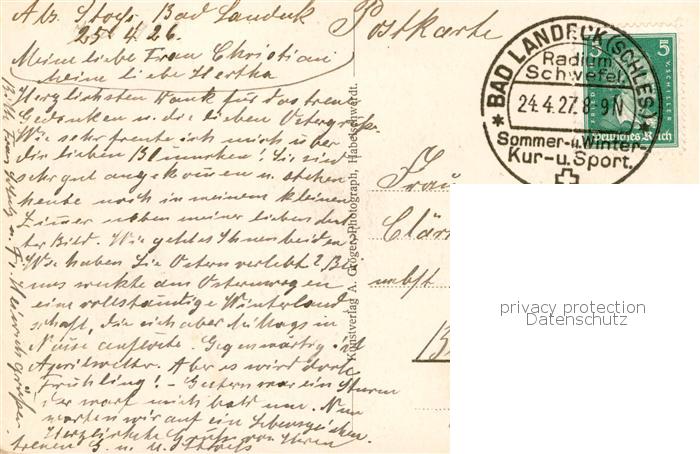 Abs. Stoss Bad Landeck
25.4.26.
Meine liebe Frau Christian
Meine liebe Hertha
Herzlichsten Dank für das treue
Gedenken u. die lieben Ostergrüße
Wie sehr freute ich mich über
die lieben Blümchen! Sie sind
sehr gut angekommen u. stehen
heute noch in meinem kleinen
Zimmer neben meiner lieben
ter Bild. Wie geht es Ihnen beiden
Wie haben Sie Ostern verlebt? Bei
uns weckte am Ostermorgen
eine vollständige Winterland
schaft, die sich aber Mittags in
auflöste. Gegenwärtig ist
Aprilwetter. Aber es wird doch
Frühling! - Gestern war ein Sturm
der warf mich bald um. Nun
warten wir auf ein Lebenszeichen.
Herzlichste Grüße von Ihren
treuen E. u. M. Stoss
Kunstverlag A. Gröger, Photograph, Habelschwerdt.
Postkarte
BAD LANDECK (SCHLES.)
Radium
Schwefel
24.4.27.8-9N
Sommer-u.Winter
Kur-u.Sport.
5 5
FRIED
V. SCHILLER
Deutsches Reich
Frau
Clär
nebst
privacy protection
Datenschutz